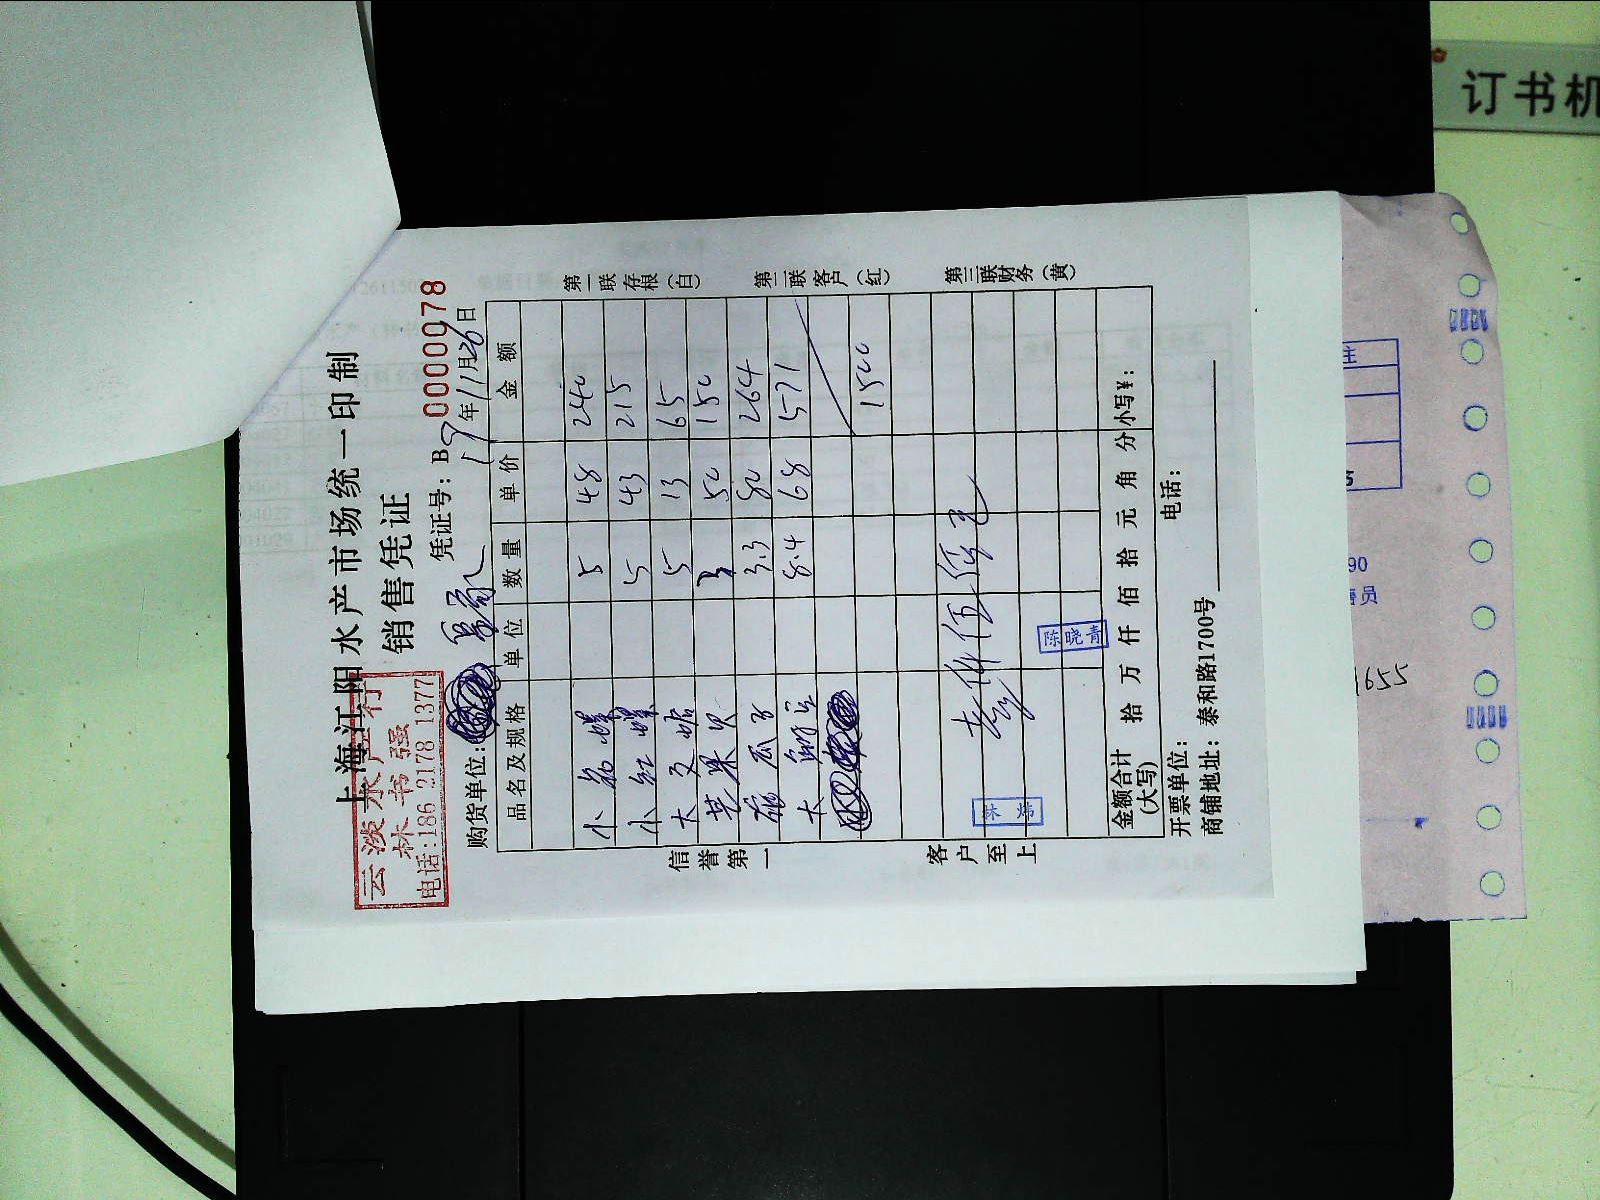 上海江阳水产市场统一印制
销售凭证
云淡水产行
林书强
电话:186 2178 1377
凭证号: B 0000078
购货单位:
19年11月26日
品名及规格 单位 数量 单价 金额
小 螺 5 48 240
小红螺 5 43 215
大文蛤 5 13 65
3 50 150
3.3 80 264
大 8.4 68 571
1500
壹仟伍 元
陈晓青
金额合计(大写) 拾 万 仟 佰 拾 元 角 分 小写¥:
开票单位: 电话:
商铺地址: 泰和路1700号
信誉第一
客户至上
第一联存根(白)
第二联客户(红)
第三联财务(黄)
订书机
90
1655